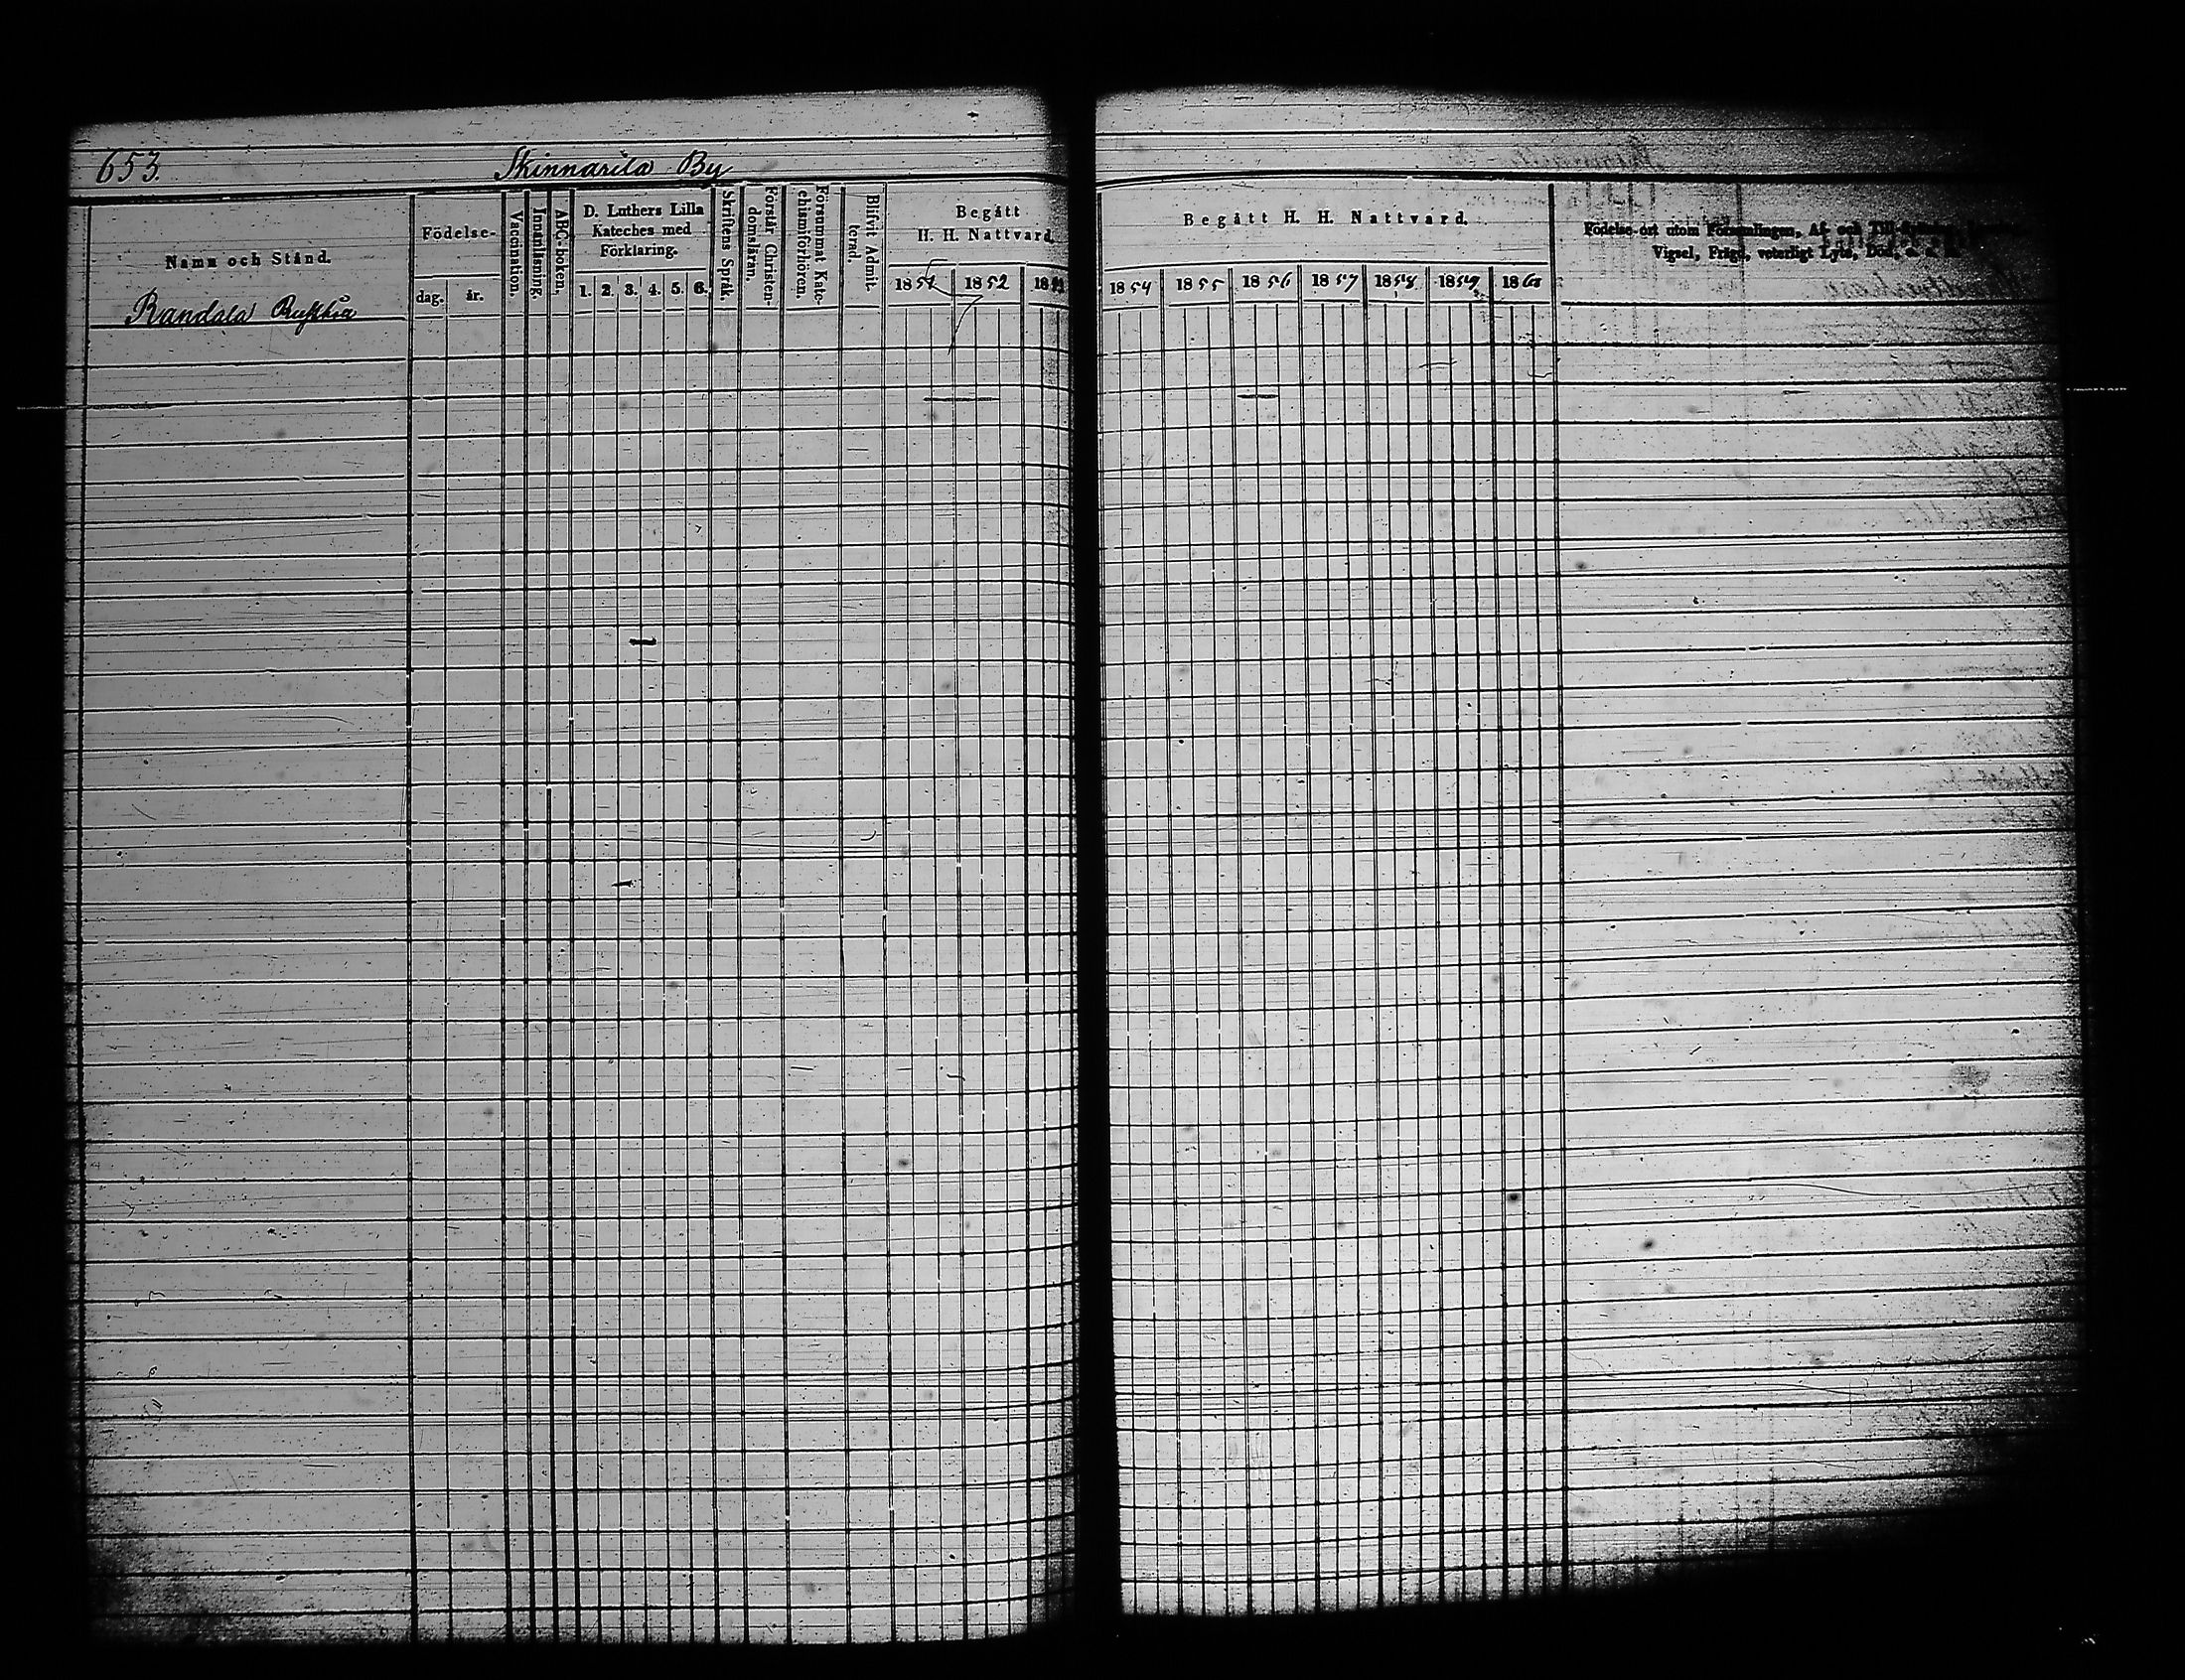 653.
Skinnarila By
Namn och Stånd.
Födelse-
dag.
år.
Vaccination.
Innanläsning.
ABC-boken.
D. Luthers Lilla
Kateches med
Förklaring.
1. 2. 3. 4. 5. 6.
Skriftens Språk.
Förstår Christen-
domsläran.
Försummat Kate-
chismiförhören.
Blifvit Admit-
terad.
Begått
H. H. Nattvard.
1851 1852 1853
Begått H. H. Nattvard.
1854 1855 1856 1857 1858 1859 1860
Födelse-ort utom Församlingen, Af- och Till-
Vigsel, Frägd, veterligt Lyte, Död,
Randala